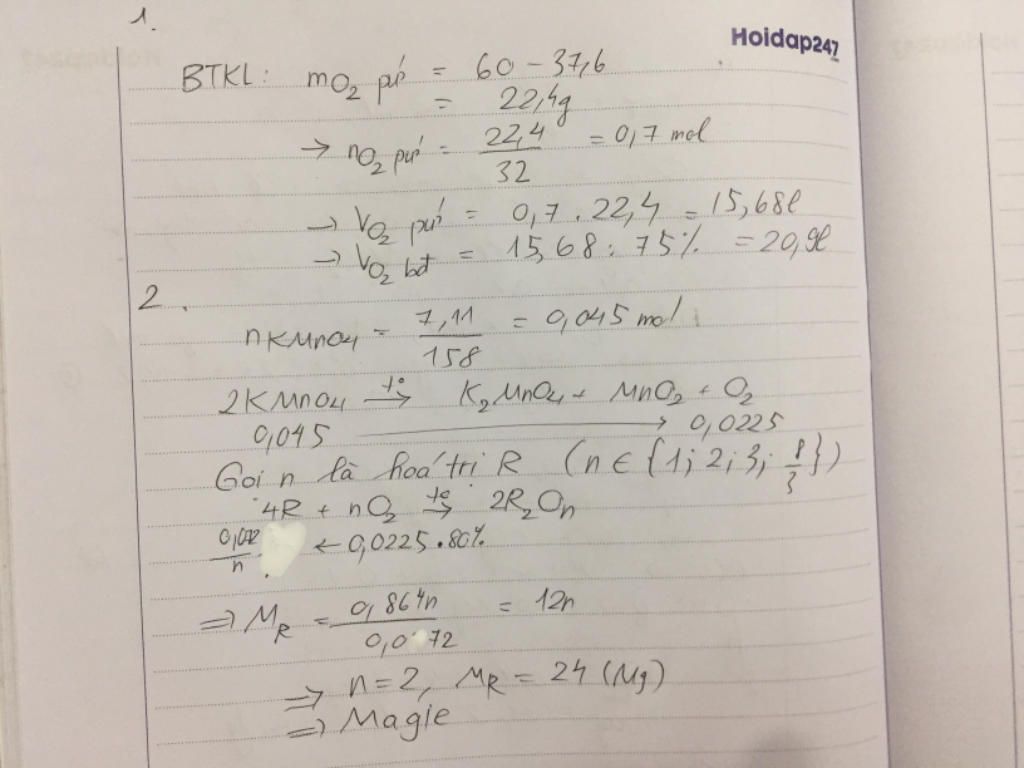 1.
Hoidap247
BTKL: mO₂ pứ = 60 - 37,6
= 22,4g
→ nO₂ pứ = 22,4/32 = 0,7 mol
→ VO₂ pứ = 0,7 . 22,4 = 15,68l
→ VO₂ bđ = 15,68 : 75% = 20,9l
2.
nKMnO₄ = 7,11/158 = 0,045 mol
2KMnO₄ t°→ K₂MnO₄ + MnO₂ + O₂
0,045 → 0,0225
Gọi n là hoá trị R (n ∈ {1; 2; 3; 8/3})
4R + nO₂ t°→ 2R₂On
0,072/n ← 0,0225 . 80%
⇒ MR = 0,864n/0,072 = 12n
⇒ n = 2, MR = 24 (Mg)
⇒ Magie